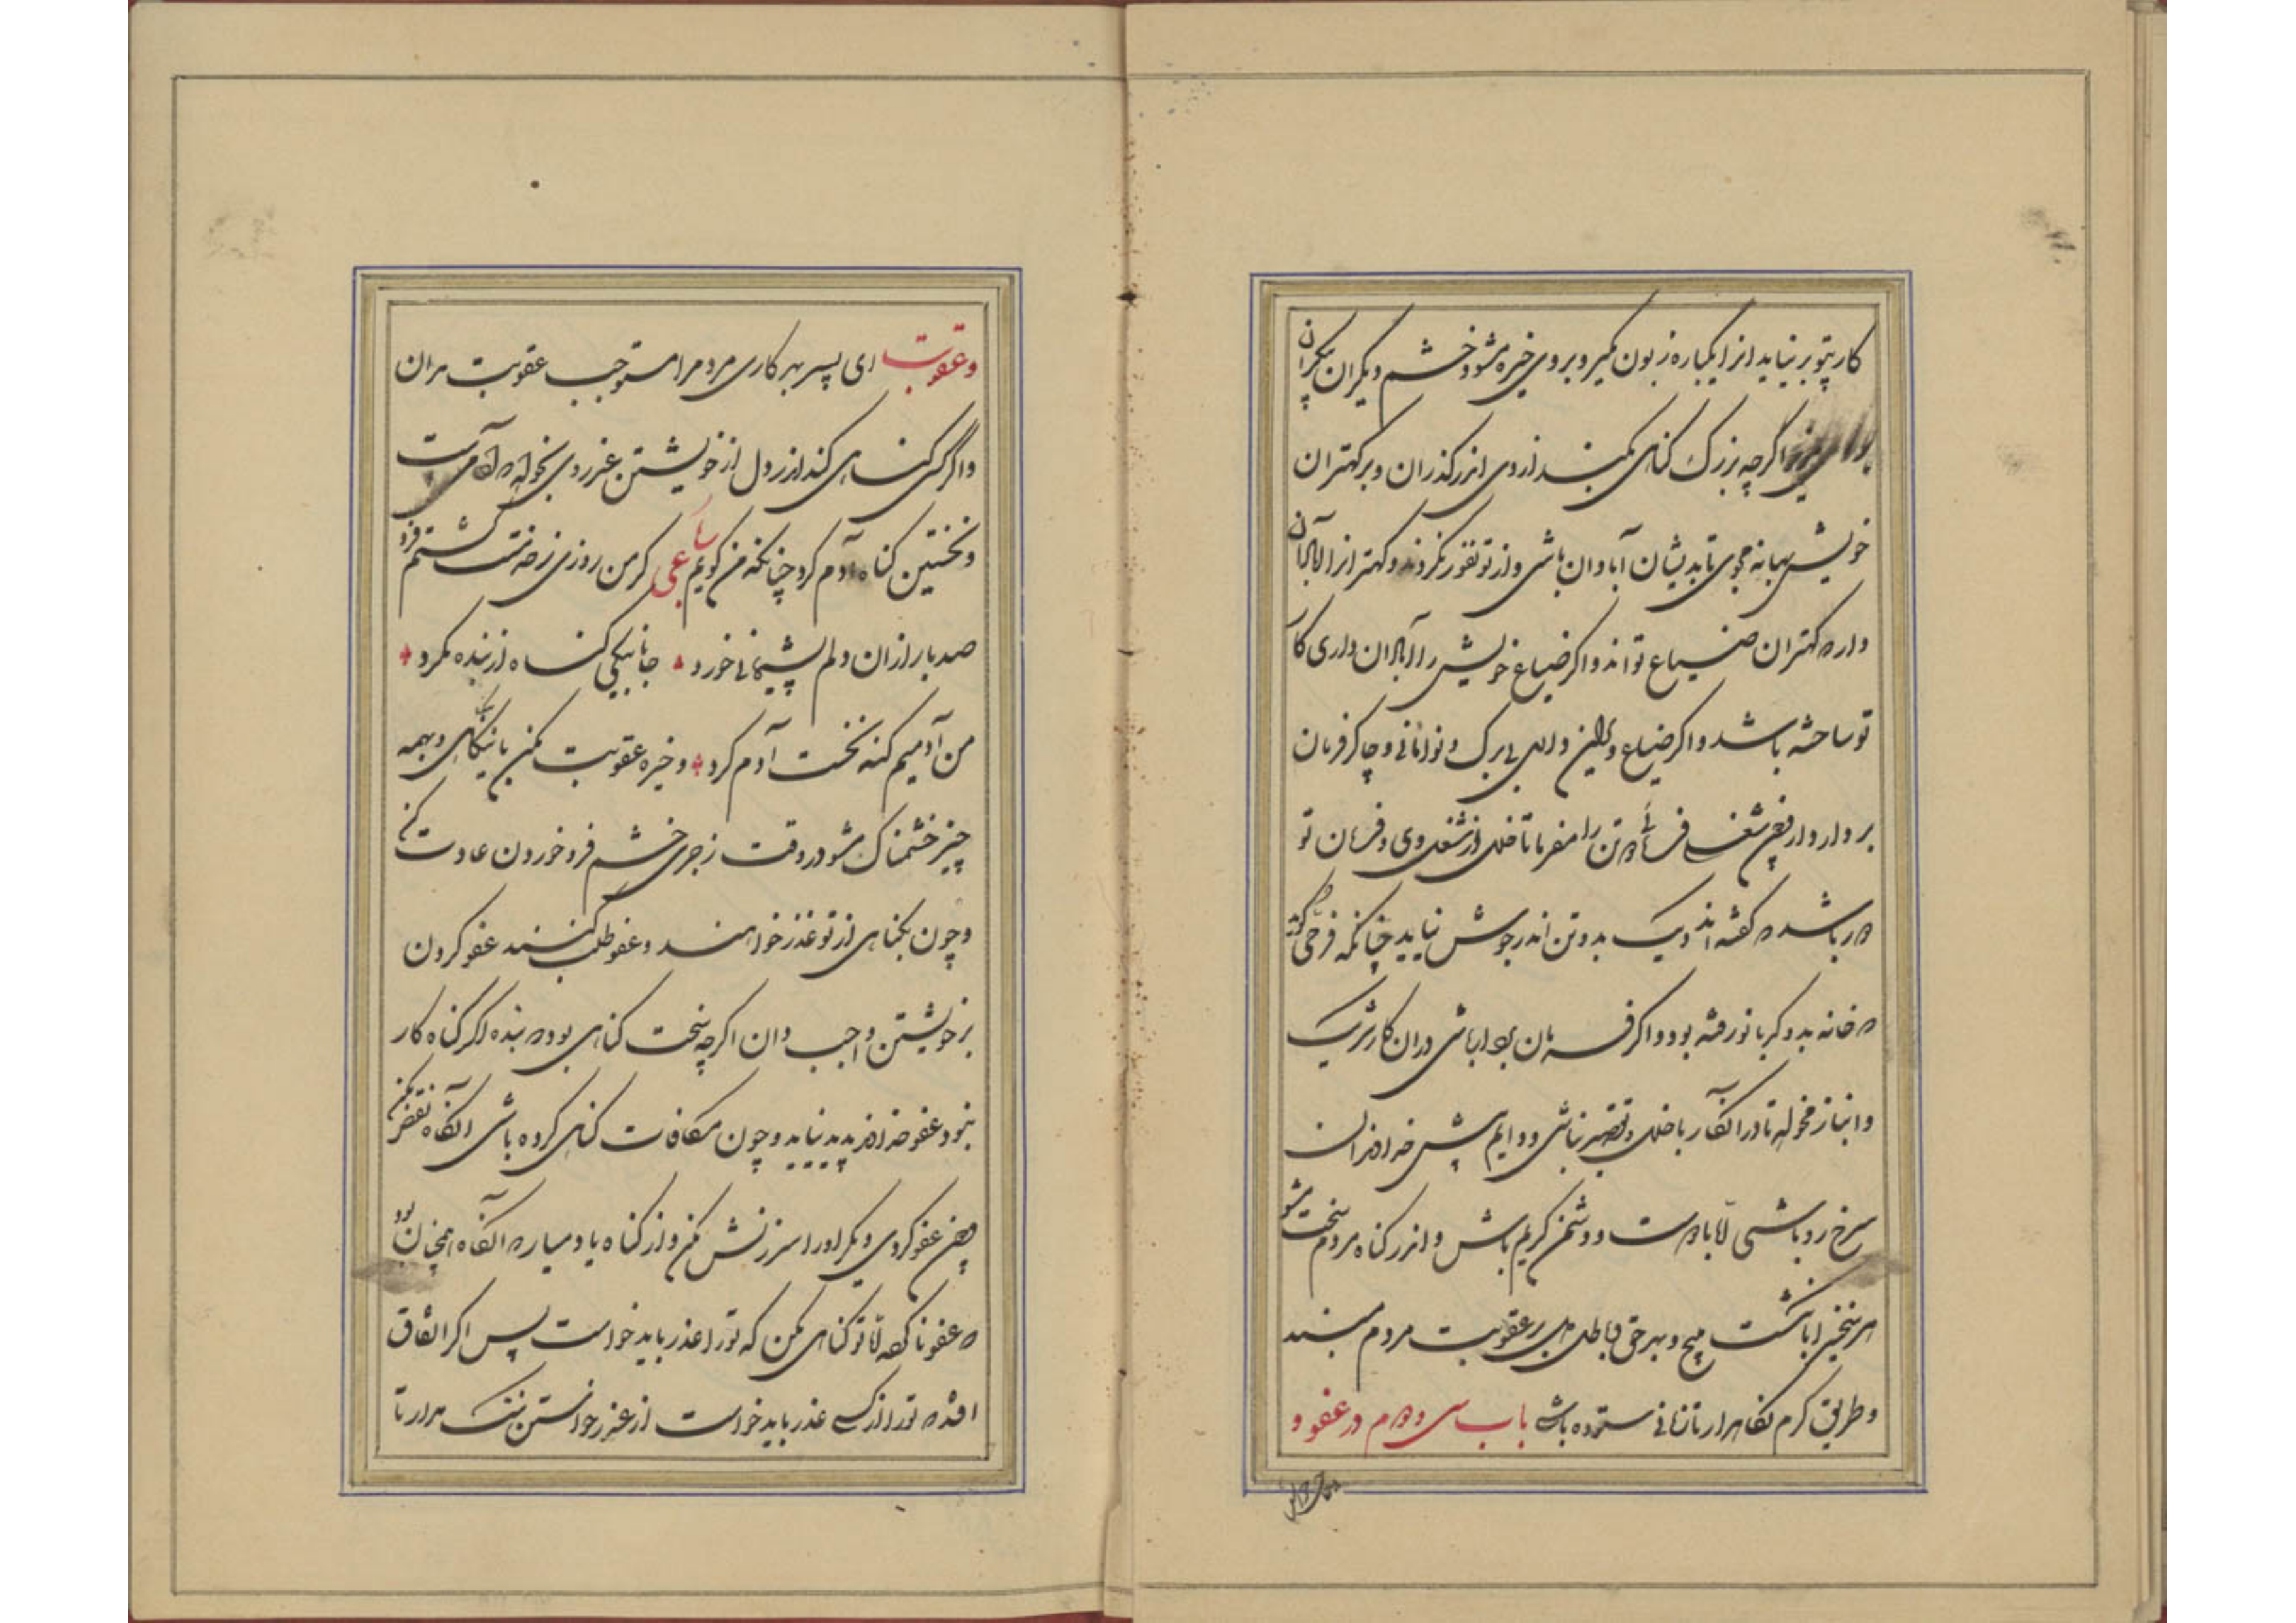 کار بتو بر نیاید او را یکباره زبون مگیر و بر وی خیره مشو و خشم دیگران بیکران
اگر چه بزرگ گناهی بکند از وی اندر گذران و بر کهتران
خویش بهانه مجوی تا بدیشان آبادان باشی و از تو نفور نگردند و کهتران را آبادان
دار که کهتران ضیاع تواند و اگر ضیاع خویش را آبادان داری کار
تو ساخته باشد و اگر ضیاع ویران داری بی برگ و نوا مانی و چاکر فرمان
بردار دار و چون شغلی فرمائی دو تن را مفرما تا خلل از شغل وی و فرمان تو
دور باشد که گفته اند دیگ بدو تن اندر جوش نیاید چنانکه فرخی گوید
که خانه بدو کدبانو رفته بود و اگر فرمان بردار باشی در آن کار شریک
و انباز مخواه تا در آن کار با خلل و تقصیر نباشی و دایم پیش خداوندان
سرخ روی باشی اما با دوست و دشمن کریم باش و اندر گناه مردم سخت مشو
هر سخنی را بانگشت مپیچ و بهر حق و باطلی دل بر عقوبت مردم مبند
و طریق کرم نگاهدار تا بزبانی ستوده باشی باب سی و دوم در عفو و
و عقوبت ای پسر بهر کاری مردم را مستوجب عقوبت مدان
و اگر کسی گناهی کند از دل از خویشتن عذر وی بخواه که آدمیست
و نخستین گناه آدم کرد چنانکه من گویم رباعی گر من روزی ز خدمتت گشتم فرد
صد بار از آن دلم پشیمانی خورد جانا بیکی گناه از بنده مگرد
من آدمیم گنه نخست آدم کرد و خیره عقوبت مکن با بیگناهی و بهمه
چیز خشمناک مشو در وقت زجری خشم فرو خوردن عادت کن
و چون بگناهی از تو عذر خواهند و عفو طلب کنند عفو کردن
بر خویشتن واجب دان اگر چه سخت گناهی بود که بنده اگر گناه کار
نبود عفو خداوند پدید نیاید و چون مکافات گناهی کرده باشی آنگاه
چون عفو کردی دیگر او را سرزنش مکن و از گناه یاد میاور که آنگاه همچنان بود
که عفو نا کرده اما تو گناهی مکن که تو را عذر باید خواست پس اگر اتفاق
افتد که تو را از کسی عذر باید خواست از عذر خواستن ننگ مدار تا